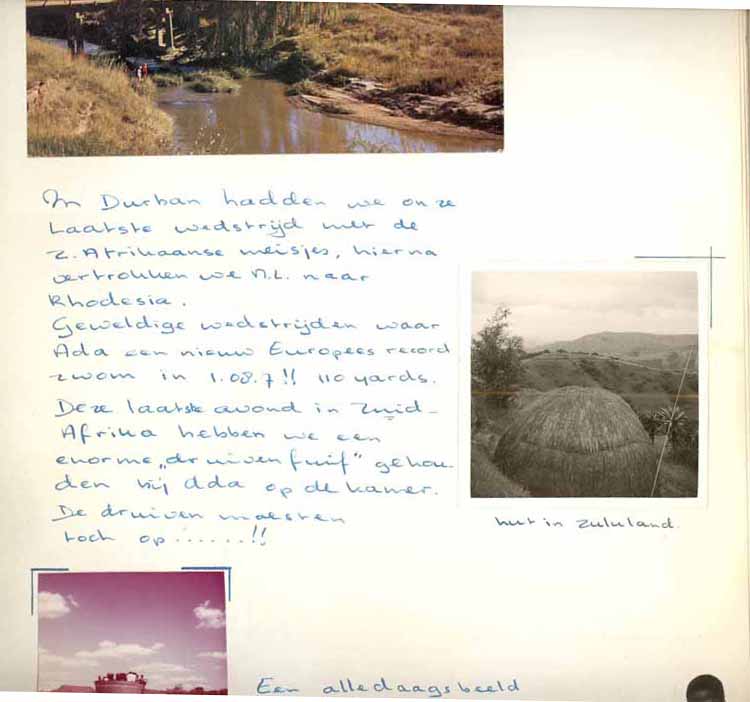 In Durban hadden we onze
Laatste wedstrijd met de
Z. Afrikaanse meisjes, hierna
vertrokken we n.l. naar
Rhodesia.
Geweldige wedstrijden waar
Ada een nieuw Europees record
zwom in 1.08.7!! 110 yards.
Deze laatste avond in Zuid-
Afrika hebben we een
enorme „druivenfuif" gehou-
den bij Ada op de kamer.
De druiven moesten
toch op ......!!
hut in Zululand.
Een alledaags beeld